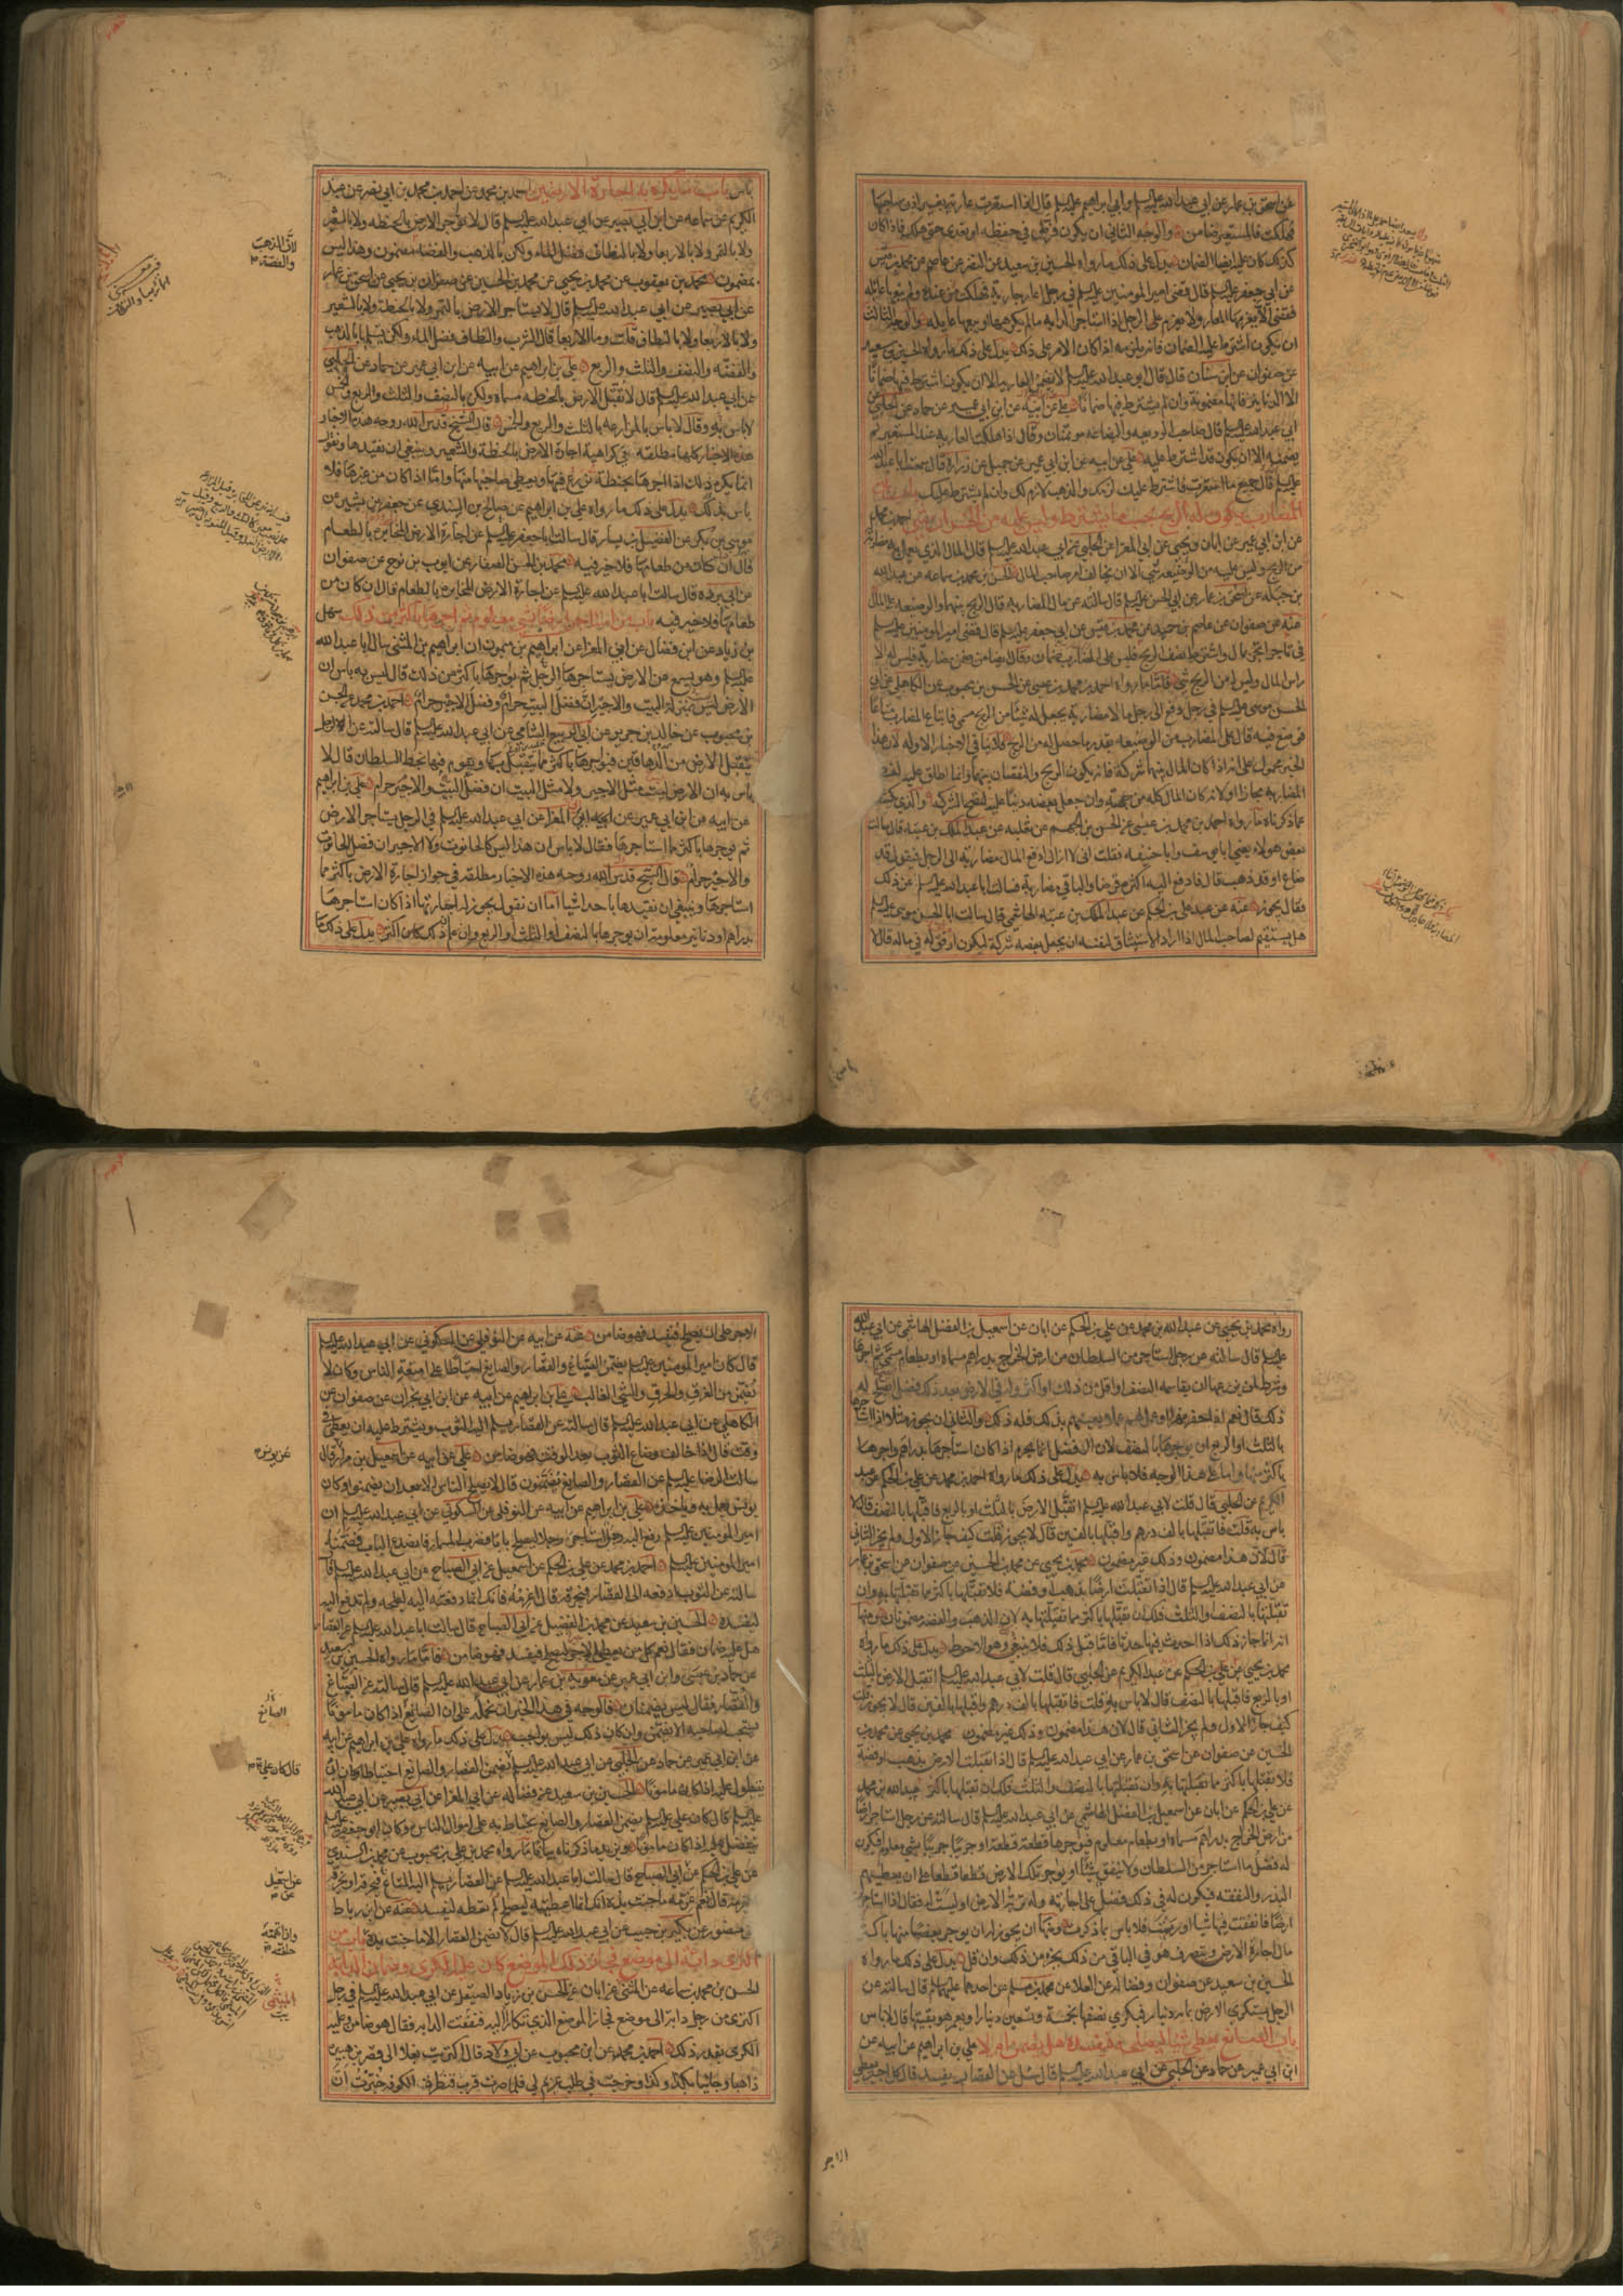 عن اسحق بن عمار عن ابي عبد الله عليه السلم وابي ابراهيم عليه السلم قال اذا استعرت عارية بغير اذن صاحبها
فهلكت فالمستعير ضامن والوجه الثاني ان يكون فرط في حفظه او تعدى حتى هلك فاذا كان
كذلك كان عليه ايضا الضمان يدل على ذلك ما رواه الحسين بن سعيد عن النضر عن عاصم عن محمد بن قيس
عن ابي جعفر عليه السلم قال قضى امير المومنين عليه السلم في رجل اعار جارية فهلكت من عنده ولم يبغها غايلة
فقضى الا يغرمها المعار ولا يغرم على الرجل اذا استاجر الدابه ما لم يكرهها او يبغها غايله والوجه الثالث
ان يكون اشترط عليه الضمان فانه يلزمه اذا كان الامر على ذلك يدل على ذلك ما رواه الحسين بن سعيد
عن صفوان عن ابن سنان قال قال ابو عبد الله عليه السلم لا تضمن العارية الا ان يكون اشترط فيها ضمانا
الا الدنانير فانها مضمونة وان لم يشترط فيها ضمانا علي عن ابيه عن ابن ابي عمير عن حماد عن الحلبي عن
ابي عبد الله عليه السلم قال صاحب الوديعه والبضاعه موتمنان وقال اذا هلكت العاريه عند المستعير لم
يضمنه الا ان يكون قد اشترط عليه علي عن ابيه عن ابن ابي عمير عن جميل عن زرارة قال سمعت ابا عبد الله
عليه السلم قال جميع ما استعرت فاشترط عليك لزمك والذهب لازم لك وان لم يشترط عليك باب ان
المضارب يكون له الربح بحسب ما يشترط وليس عليه من الخسران شي احمد بن محمد
عن ابن ابي عمير عن ابان ويحيى عن ابي المغرا عن الحلبي عن ابي عبد الله عليه السلم قال المال الذي يعمل به مضاربة له
من الربح وليس عليه من الوضيعه شي الا ان يخالف امر صاحب المال الحسن بن محمد بن سماعه عن عبد الله
بن جبلة عن اسحق بن عمار عن ابي الحسن عليه السلم قال سالته عن مال المضاربه قال الربح بينهما والوضيعه على المال
عنه عن صفوان عن عاصم بن حميد عن محمد بن قيس عن ابي جعفر عليه السلم قال قضى امير المومنين عليه السلم
في تاجر اتجر بمال واشترط نصف الربح فليس على المضارب ضمان وقال ايضا من ضمن مضاربة فليس له الا
راس المال وليس له من الربح شي فاما ما رواه احمد بن محمد بن عيسى عن الحسن بن محبوب عن الكاهلي عن ابي
الحسن موسى عليه السلم في رجل دفع الى رجل مالا مضاربة يجعل له شيئا من الربح مسمى فابتاع المضارب متاعا
فوضع فيه قال على المضارب من الوضيعه بقدر ما جعل له من الربح فلا ينافي الاخبار الاوله لان هذا
الخبر محمول على انه اذا كان المال بينهما شركة فانه يكون الربح والنقصان بينهما وانما اطلق عليه لفظ
المضاربه مجازا او لانه كان المال كله من جهته وان جعل بعضه دينا عليه لتصح الشركه والذي يكشف
عما ذكرناه ما رواه احمد بن محمد بن عيسى عن الحسن بن الجهم عن ثعلبه عن عبد الملك بن عتبه قال سالت
بعض هولاء يعني ابا يوسف وابا حنيفه فقلت اني لا ازال ادفع المال مضاربة الى الرجل فيقول قد
ضاع او قد ذهب قال فادفع اليه اكثره قرضا والباقي مضاربة فسالت ابا عبد الله عليه السلم عن ذلك
فقال يجوز عنه عن علي بن الحكم عن عبد الملك بن عتبة الهاشمي قال سالت ابا الحسن موسى عليه السلم
هل يستقيم لصاحب المال اذا اراد الاستيثاق لنفسه ان يجعل بعضه شركة ليكون اوثق له في ماله قال لا
باس باب ما يكره به اجارة الارضين احمد بن محمد عن احمد بن محمد بن ابي نصر عن عبد
الكريم عن سماعه عن ابي بصير عن ابي عبد الله عليه السلم قال لا تواجر الارض بالحنطه ولا بالشعير
ولا بالتمر ولا بالاربعا ولا بالنطاف فضل الماء ولكن بالذهب والفضة مضمون وهذا ليس
بمضمون محمد بن يعقوب عن محمد بن يحيى عن محمد بن الحسين عن صفوان بن يحيى عن اسحق بن عمار
عن ابي بصير عن ابي عبد الله عليه السلم قال لا تستاجر الارض بالتمر ولا بالحنطة ولا بالشعير
ولا بالاربعا ولا بالنطاف قلت وما الاربعا قال الشرب والنطاف فضل الماء ولكن تقبلها بالذهب
والفضة والنصف والثلث والربع علي بن ابراهيم عن ابيه عن ابن ابي عمير عن حماد عن الحلبي
عن ابي عبد الله عليه السلم قال لا تقبل الارض بالحنطه مسماة ولكن بالنصف والثلث والربع والخمس
لا باس به وقال لا باس بالمزارعه بالثلث والربع والخمس قال الشيخ قدس الله روحه هذه الاخبار
هذه الاخبار كلها مطلقه في كراهية اجارة الارض بالحنطة والشعير وينبغي ان نقيدها ونقول
انما يكره ذلك اذا اجرها بحنطة تزرع فيها ويعطي صاحبها منها واما اذا كان من غيرها فلا
باس بذلك يدل على ذلك ما رواه علي بن ابراهيم عن صالح بن السندي عن جعفر بن بشير عن
موسى بن بكر عن الفضيل بن يسار قال سالت ابا جعفر عليه السلم عن اجارة الارض المخابره بالطعام
قال ان كان من طعامها فلا خير فيه محمد بن الحسن الصفار عن ايوب بن نوح عن صفوان
عن ابي برده قال سالت ابا عبد الله عليه السلم عن اجارة الارض المخابرة بالطعام قال ان كان من
طعامها فلا خير فيه باب من استاجر ارضا بشي معلوم ثم اجرها باكثر من ذلك سهل
بن زياد عن ابن فضال عن ابي المغرا عن ابراهيم بن ميمون ان ابراهيم بن المثنى سال ابا عبد الله
عليه السلم وهو يسمع عن الارض يستاجرها الرجل ثم يواجرها باكثر من ذلك قال ليس به باس ان
الارض ليست بمنزلة البيت والاجير ان فضل البيت حرام وفضل الاجير حرام احمد بن محمد عن الحسن
بن محبوب عن خالد بن جرير عن ابي الربيع الشامي عن ابي عبد الله عليه السلم قال سالته عن الرجل
يتقبل الارض من الدهاقين فيواجرها باكثر مما يتقبل بها ويقوم فيها بحظ السلطان قال لا
باس به ان الارض ليست مثل الاجير ولا مثل البيت ان فضل البيت والاجير حرام علي بن ابراهيم
عن ابيه عن ابن ابي عمير عن ابي المغرا عن ابي عبد الله عليه السلم في الرجل يستاجر الارض
ثم يوجرها باكثر مما استاجرها فقال لا باس ان هذا ليس كالحانوت ولا الاجير ان فضل الحانوت
والاجير حرام قال الشيخ قدس الله روحه هذه الاخبار مطلقه في جواز اجارة الارض باكثر مما
استاجرها وينبغي ان نقيدها باحد اشيا اما ان نقول يجوز له اجارتها اذا كان استاجرها
بدراهم او دنانير معلومة ان يوجرها بالنصف او الثلث او الربع وان علم ان ذلك كان اكثر يدل على ذلك ما
لان الذهب
والفضة
رواه محمد بن يحيى عن عبد الله بن محمد عن علي بن الحكم عن ابان عن اسمعيل بن الفضل الهاشمي عن ابي عبد الله
عليه السلم قال سالته عن رجل استاجر من السلطان من ارض الخراج بدراهم مسماة او بطعام مسمى ثم اجرها
وشرط لمن يزرعها ان يقاسمه النصف او اقل من ذلك او اكثر وله في الارض بعد ذلك فضل ايصلح له
ذلك قال نعم اذا حفر نهرا او عمل لهم عملا يعينهم بذلك فله ذلك والثاني ان يجوز مثلا اذا استاجرها
بالثلث او الربع ان يوجرها بالنصف لان الفضل انما يحرم اذا كان استاجرها بدراهم واجرها
باكثر منها واما على هذا الوجه فلا باس به يدل على ذلك ما رواه احمد بن محمد عن علي بن الحكم عن عبد
الكريم عن الحلبي قال قلت لابي عبد الله عليه السلم اتقبل الارض بالثلث او بالربع فاقبلها بالنصف قال لا
باس به قلت فاتقبلها بالف درهم واقبلها بالفين قال لا يجوز قلت كيف جاز الاول ولم يجز الثاني
قال لان هذا مضمون وذلك غير مضمون محمد بن يحيى عن محمد بن الحسين عن صفوان عن اسحق بن عمار
عن ابي عبد الله عليه السلم قال اذا تقبلت ارضا بذهب او فضه فلا تقبلها باكثر مما تقبلتها به وان
تقبلتها بالنصف والثلث فلك ان تقبلها باكثر مما تقبلتها به لان الذهب والفضه مضمونان ومنها
انه انما جاز ذلك اذا احدث فيها حدثا فاما قبل ذلك فلا ينبغي وهو الاحوط يدل على ذلك ما رواه
محمد بن يحيى عن علي بن الحكم عن عبد الكريم عن الحلبي قال قلت لابي عبد الله عليه السلم اتقبل الارض بالثلث
او بالربع فاقبلها بالنصف قال لا باس به قلت فاتقبلها بالف درهم واقبلها بالفين قال لا يجوز قلت
كيف جاز الاول ولم يجز الثاني قال لان هذا مضمون وذلك غير مضمون محمد بن يحيى عن محمد بن
الحسين عن صفوان عن اسحق بن عمار عن ابي عبد الله عليه السلم قال اذا تقبلت الارض بذهب او فضة
فلا تقبلها باكثر مما تقبلتها به وان تقبلتها بالنصف والثلث فلك ان تقبلها باكثر عبد الله بن محمد
عن علي بن الحكم عن ابان عن اسمعيل بن الفضل الهاشمي عن ابي عبد الله عليه السلم قال سالته عن رجل استاجر ارضا
من ارض الخراج بدراهم مسماه او بطعام معلوم فيواجرها قطعة قطعة او جريبا جريبا بشي معلوم فيكون
له فضل ما استاجر من السلطان ولا ينفق شيئا او يواجر تلك الارض قطعا قطعا على ان يعطيهم
البذر والنفقه فيكون له في ذلك فضل على اجارته وله تربة الارض او ليست له فقال اذا استاجرت
ارضا فانفقت فيها شيا او رممت فلا باس بما ذكرت ومنها ان يجوز له ان يوجر بعضها منها باكثر
مال اجارة الارض ويتصرف هو في الباقي من ذلك بجزء من ذلك وان قل يدل على ذلك ما رواه
الحسين بن سعيد عن صفوان وفضاله عن العلا عن محمد بن مسلم عن احدهما عليهما السلم قال سالته عن
الرجل يستكري الارض بمايه دينار فيكري نصفها بخمسة وتسعين دينارا ويعمر هو بقيتها قال لا باس
باب الصانع يعطى شيئا ليصلحه فيفسده هل يضمن ام لا علي بن ابراهيم عن ابيه عن
ابن ابي عمير عن حماد عن الحلبي عن ابي عبد الله عليه السلم قال سئل عن القصار يفسد قال كل اجير يعطى
الاجر على ان يصلح فيفسد فهو ضامن عنه عن ابيه عن النوفلي عن السكوني عن ابي عبد الله عليه السلم
قال كان امير المومنين عليه السلم يضمن الصباغ والقصار والصايغ احتياطا على امتعة الناس وكان لا
يضمن من الغرق والحرق والشي الغالب علي بن ابراهيم عن ابيه عن ابن ابي نجران عن صفوان عن
الكاهلي عن ابي عبد الله عليه السلم قال سالته عن القصار يسلم اليه الثوب ويشترط عليه ان يعطي في
وقت قال اذا خالف وضاع الثوب بعد الوقت فهو ضامن علي عن ابيه عن اسمعيل بن مرار قال
سالت الرضا عليه السلم عن القصار والصايغ يضمنون قال لا يصلح الناس الا بعد ان يضمنوا وكان
يونس يعمل به وياخذ علي بن ابراهيم عن ابيه عن النوفلي عن السكوني عن ابي عبد الله عليه السلم ان
امير المومنين عليه السلم رفع اليه رجل استاجر رجلا ليصلح بابا فضرب المسمار فانصدع الباب فضمنه
امير المومنين عليه السلم احمد بن محمد عن علي بن الحكم عن اسمعيل عن ابي الصباح عن ابي عبد الله عليه السلم قال
سالته عن الثوب ادفعه الى القصار فيخرقه قال اغرمه فانك انما دفعته اليه ليصلحه ولم تدفع اليه
ليفسده الحسين بن سعيد عن محمد بن الفضيل عن ابي الصباح قال سالت ابا عبد الله عليه السلم عن القصار
هل عليه ضمان فقال نعم كل من يعطى الاجر ليصلح فيفسد فهو ضامن فاما ما رواه الحسين بن سعيد
عن حماد بن عيسى وابن ابي عمير عن معوية بن عمار عن ابي عبد الله عليه السلم قال سالته عن الصباغ
والقصار فقال ليس يضمنان فالوجه في هذا الخبر ان نحمله على ان الصانع اذا كان مامونا
يستحب لصاحبه الا يضمنه وان كان ذلك ليس بواجب يدل على ذلك ما رواه علي بن ابراهيم عن ابيه
عن ابن ابي عمير عن حماد عن الحلبي عن ابي عبد الله عليه السلم يضمن القصار والصايغ احتياطا وكان ابي
يتطول عليه اذا كان مامونا الحسين بن سعيد عن فضاله عن ابي المغرا عن ابي بصير عن ابي عبد الله
عليه السلم قال كان علي عليه السلم يضمن القصار والصايغ يحتاط به على اموال الناس وكان ابو جعفر عليه السلم
يتفضل عليه اذا كان مامونا ويزيد ما ذكرناه بيانا ما رواه محمد بن علي بن محبوب عن محمد بن السندي
عن علي بن الحكم عن ابي الصباح قال سالت ابا عبد الله عليه السلم عن القصار يسلم اليه المتاع فيخرقه او يحرقه
يغرمه قال نعم غرمه ما جنت يداه انك انما اعطيته ليصلح لم تعطه ليفسد عنه عن ابن رباط
عن منصور عن بكير بن حبيب عن ابي عبد الله عليه السلم قال لا يضمن القصار الا ما جنت يداه باب من
اكترى دابة الى موضع فجاز ذلك الموضع كان عليه الكرى وضمان الدابه
الحسن بن محمد بن سماعه عن المثنى عن ابان عن الحسن بن زياد الصيقل عن ابي عبد الله عليه السلم في رجل
اكترى من رجل دابة الى موضع فجاز الموضع الذي تكارا اليه فنفقت الدابه فقال هو ضامن وعليه
الكرى بقدر ذلك احمد بن محمد عن ابن محبوب عن ابي ولاد قال اكتريت بغلا الى قصر بن هبيرة
ذاهبا وجائيا بكذا وكذا وخرجت في طلب غريم لي فلما صرت قرب قنطرة الكوفه خبرت ان
عن يونس
الصانع
قال كان علي
الميثمي
الاجر